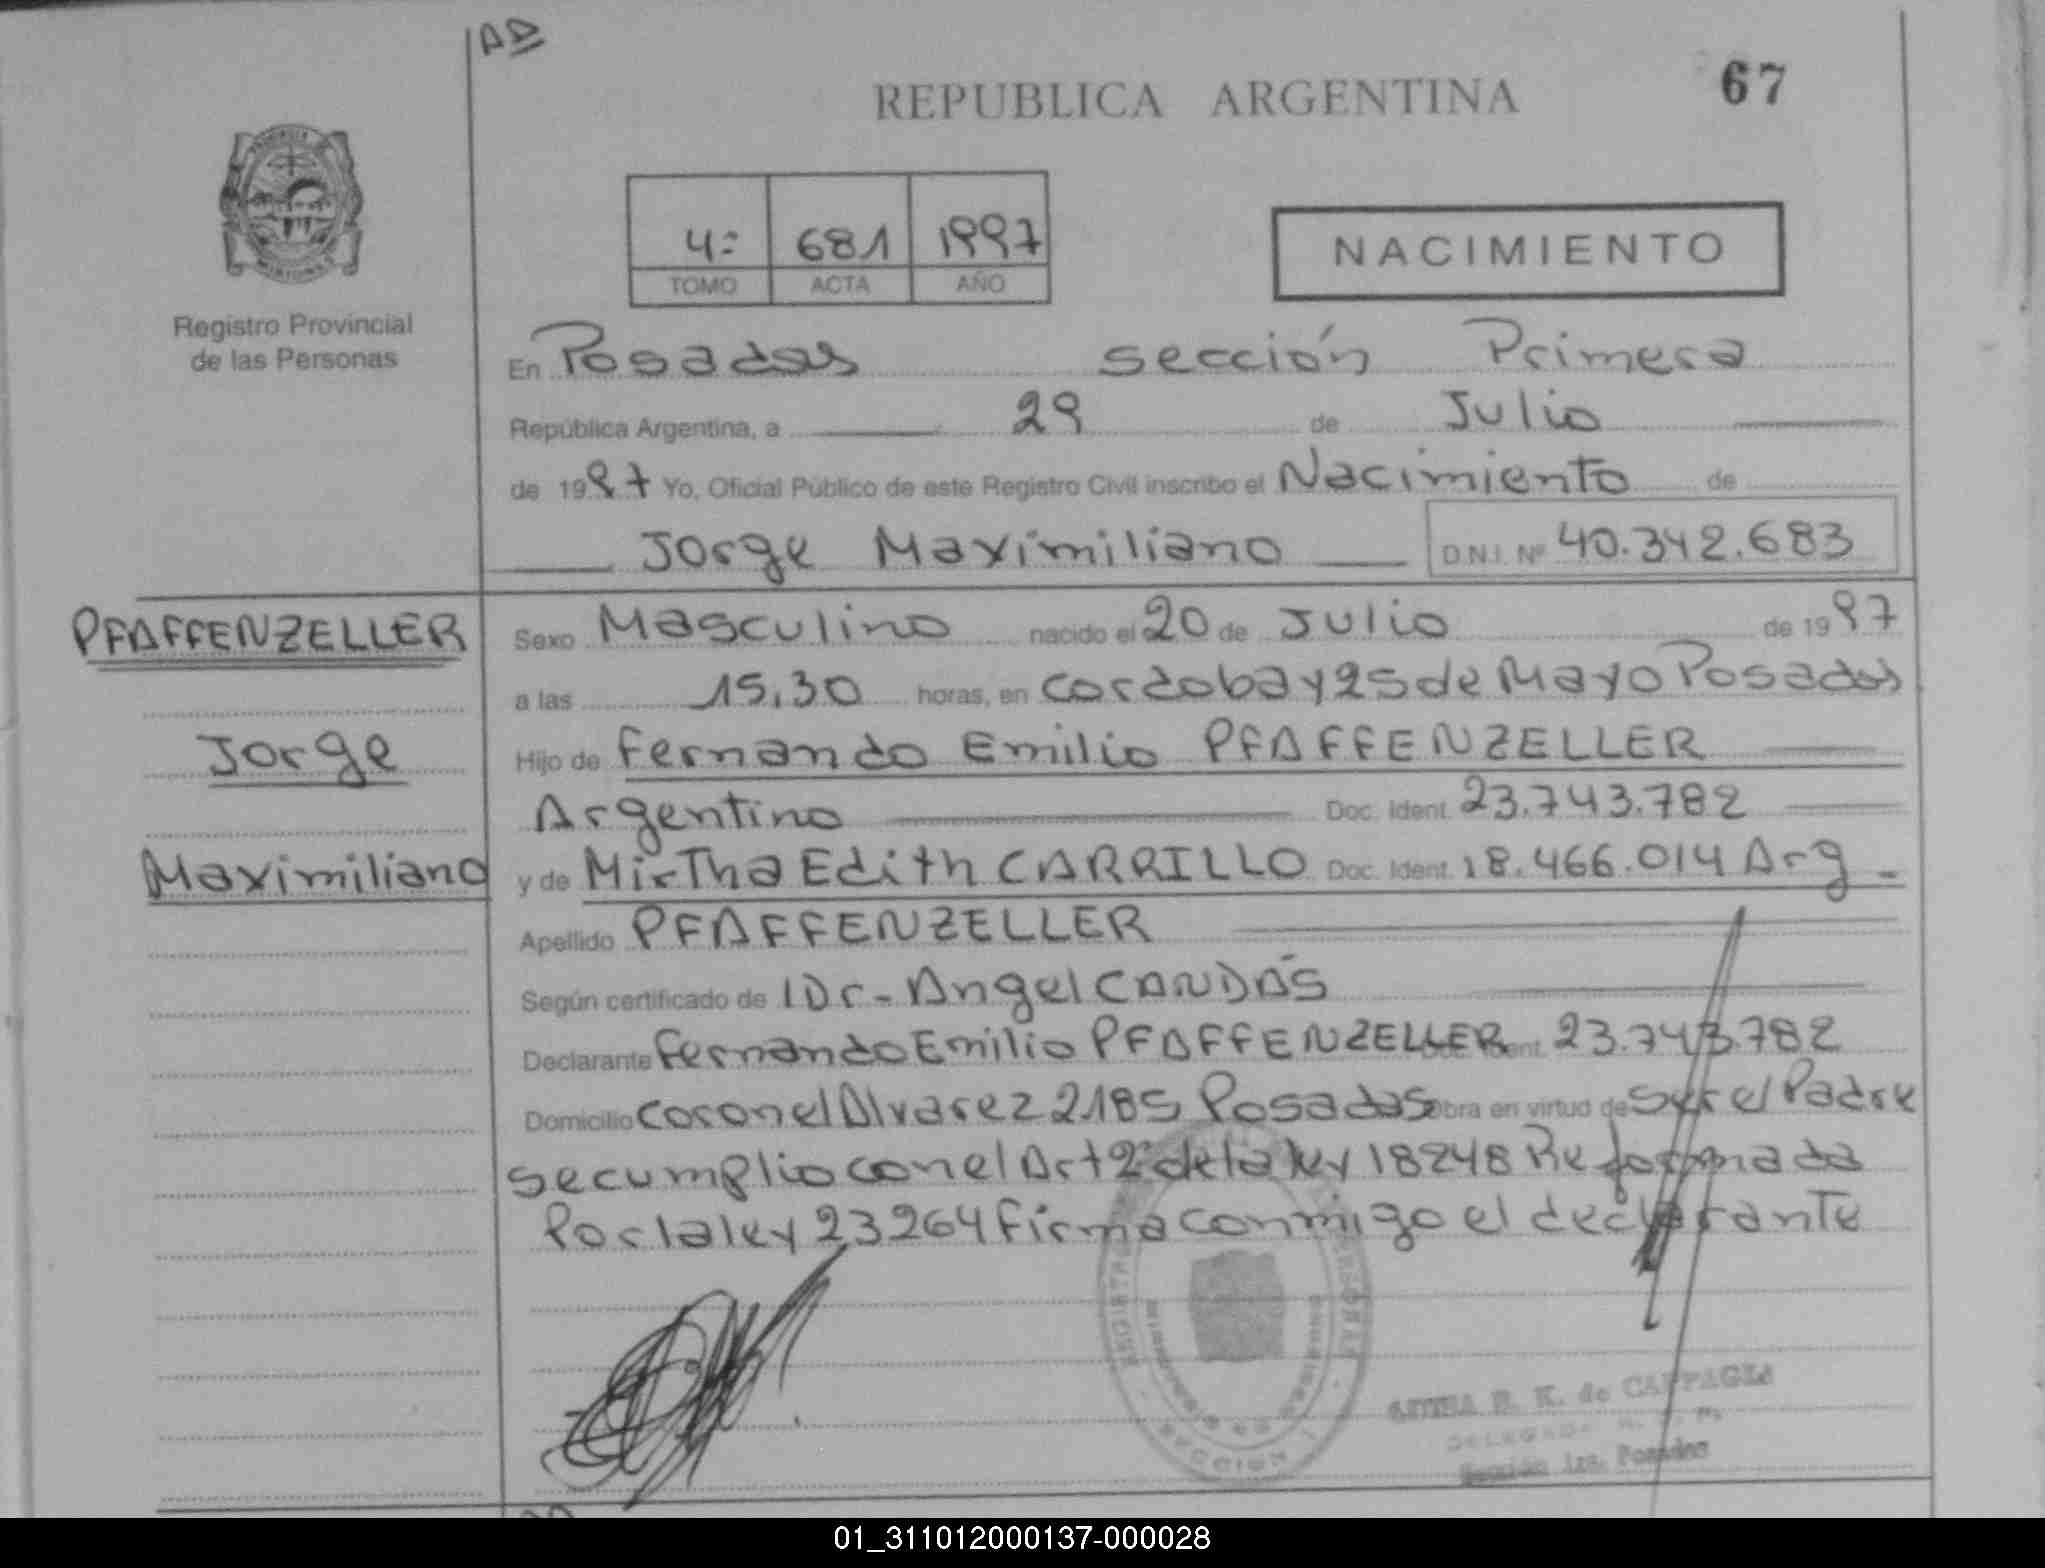 AD
REPUBLICA ARGENTINA
67
4º 681 1997
TOMO ACTA AÑO
NACIMIENTO
Registro Provincial
de las Personas
En Posadas sección Primera
República Argentina, a 29 de Julio
de 1997 Yo, Oficial Público de este Registro Civil inscribo el Nacimiento de
Jorge Maximiliano D.N.I. Nº 40.342.683
PFAFFENZELLER
Jorge
Maximiliano
Sexo Masculino nacido el 20 de Julio de 1997
a las 15,30 horas, en Cordoba y 25 de Mayo Posadas
Hijo de Fernando Emilio PFAFFENZELLER
Argentino Doc. Ident. 23.743.782
y de Mirtha Edith CARRILLO Doc. Ident. 18.466.014 Arg
Apellido PFAFFENZELLER
Según certificado de Dr. Angel CANDÁS
Declarante Fernando Emilio PFAFFENZELLER Ident. 23.743.782
Domicilio Coronel Alvarez 2185 Posadas Obra en virtud de ser el Padre
se cumplio con el Art 2º de la ley 18248 Reformada
Por la ley 23264 firma conmigo el declarante
SECCION 1
R. K. de CAPPAGLI
DELEGADA
Sección 1ra. Posadas
01_311012000137-000028